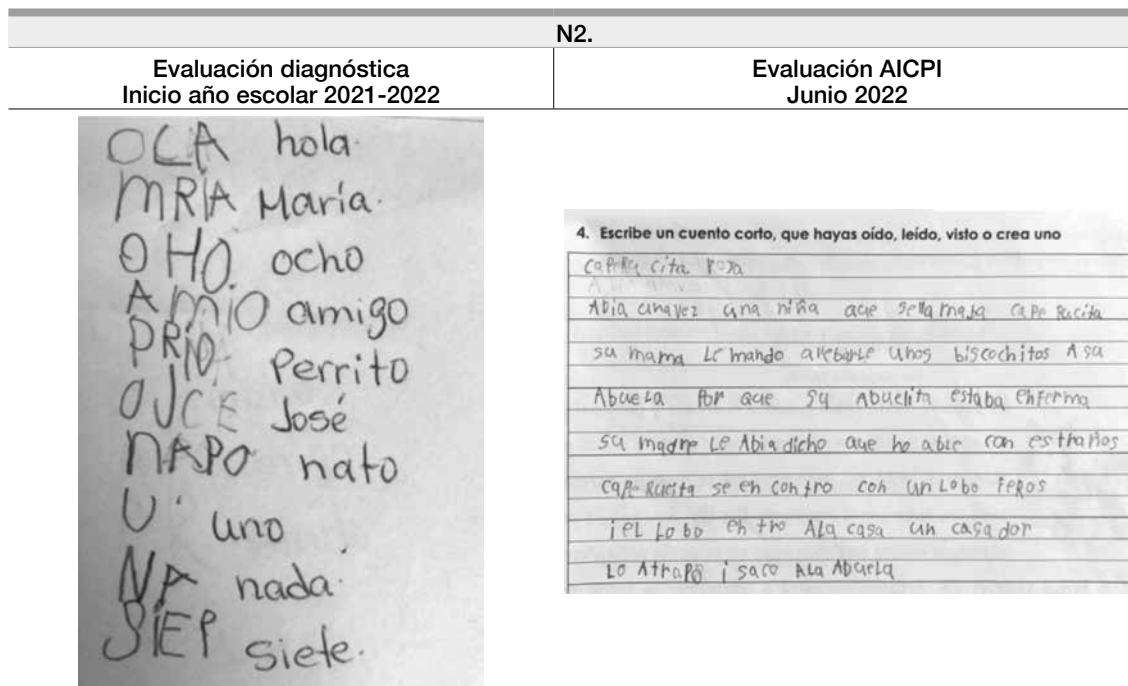 N2.
Evaluación diagnóstica
Inicio año escolar 2021-2022
Evaluación AICPI
Junio 2022
OCA hola.
MRIA María.
OHO. ocho
AMIO amigo
PRIO, Perrito
OJCE José
NAPO nato
U uno
NA nada.
SIEP siete.
4. Escribe un cuento corto, que hayas oído, leído, visto o crea uno
cita roja
Abia unavez una niña que sellamaja cape Rucita
su mama Le mando allebarle unos biscochitos A su
Abuela Por que su Abuelita estaba enferma
su madre Le Abia dicho que no able con esthaños
cape Rucita se en contro con un Lobo feros
i el Lobo en tro Ala casa un casador
Lo Athapo i saco Ala Abuela